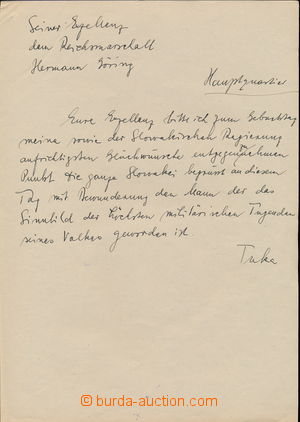 Seiner Exzellenz
dem Reichsmarschall
Hermann Göring
Hauptquartier
Eure Exzellenz bitte ich zum Geburtstag
meine sowie der Slowakischen Regierung
aufrichtigsten Glückwünsche entgegenzunehmen
Punkt Die ganze Slowakei begrüsst an diesem
Tag mit Bewunderung den Mann der das
Sinnbild der höchsten militärischen Tugenden
seines Volkes geworden ist.
Tuka
© burda-auction.com